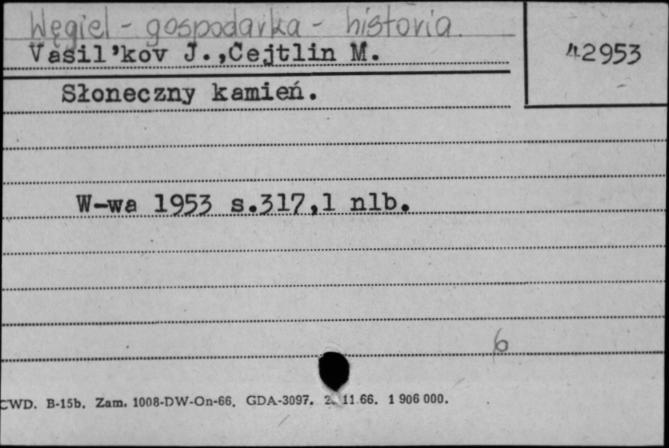 Węgiel - gospodarka - historia
Vasil'kov J.,Cejtlin M.
42953
Słoneczny kamień.
W-wa 1953 s.317,1 nlb.
6
CWD. B-15b. Zam. 1008-DW-On-66. GDA-3097. 11.66. 1 906 000.